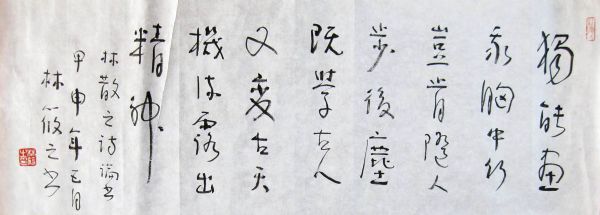 獨能畫
我胸中竹
豈肯隨人
步後塵
既學古人
又變古天
機流露出
精神
林散之詩論書
甲申年五月
林筱之书